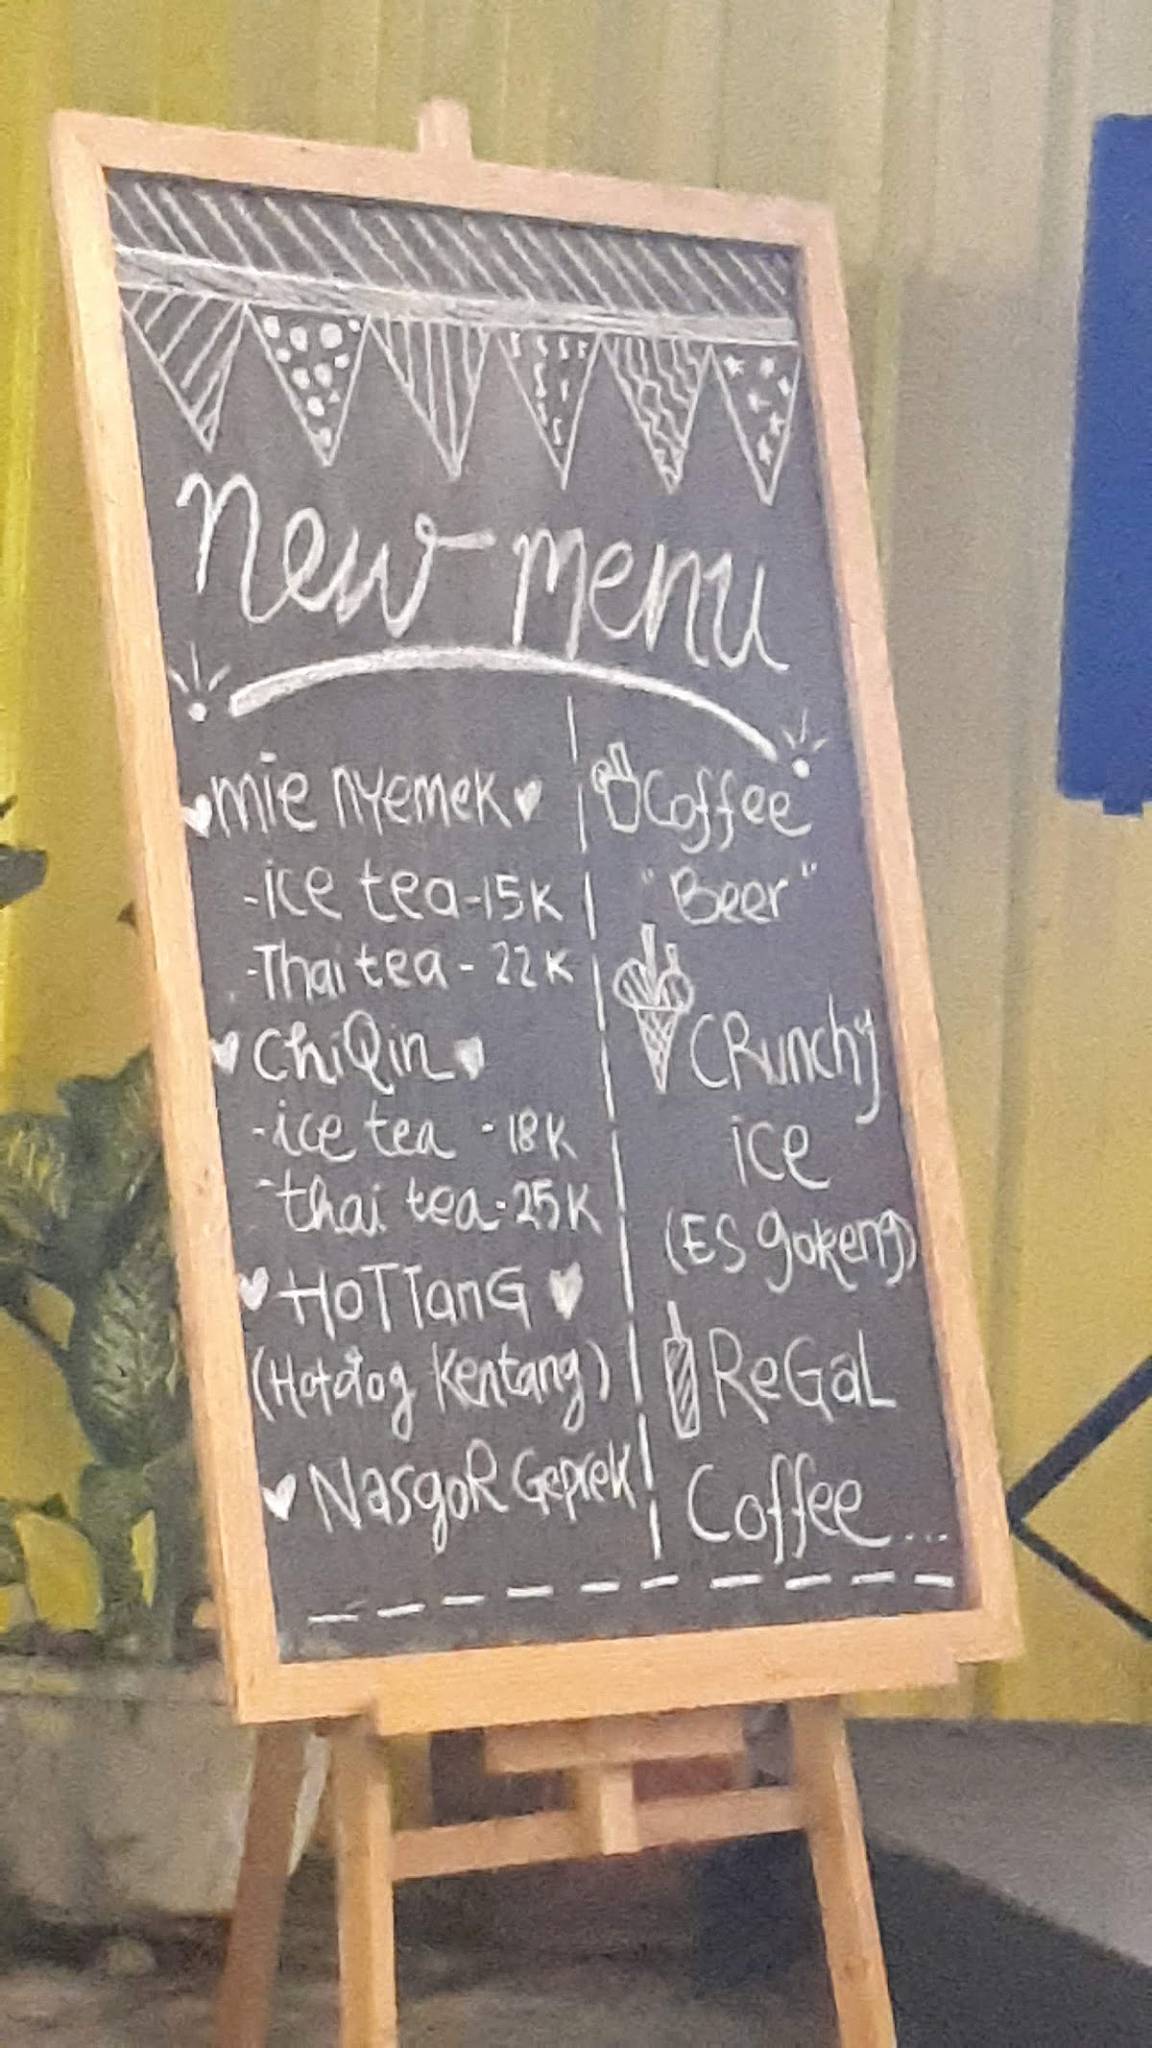 New menu
mie nyemek
-ice tea-15K
-Thai tea - 22K
ChiQin
-ice tea - 18K
-thai tea - 25K
HoTTanG
(Hotdog Kentang)
NasgoR Geprek
Coffee
"Beer"
CRunchy
ice
(ES gokeng)
ReGaL
Coffee...